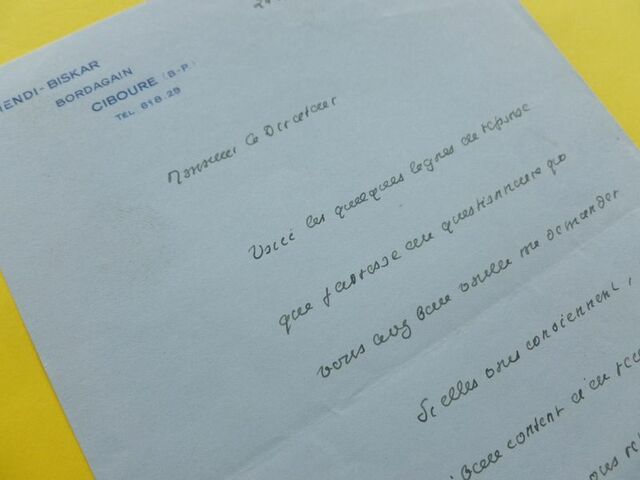 ENDI-BISKAR
BORDAGAIN
CIBOURE (B-P.)
TEL. 618.28
Monsieur le Directeur
Voici les quelques lignes de réponse
que j'adresse au questionnaire
vous avez bien voulu me demander
Si elles vous conviennent,
bien content d'en